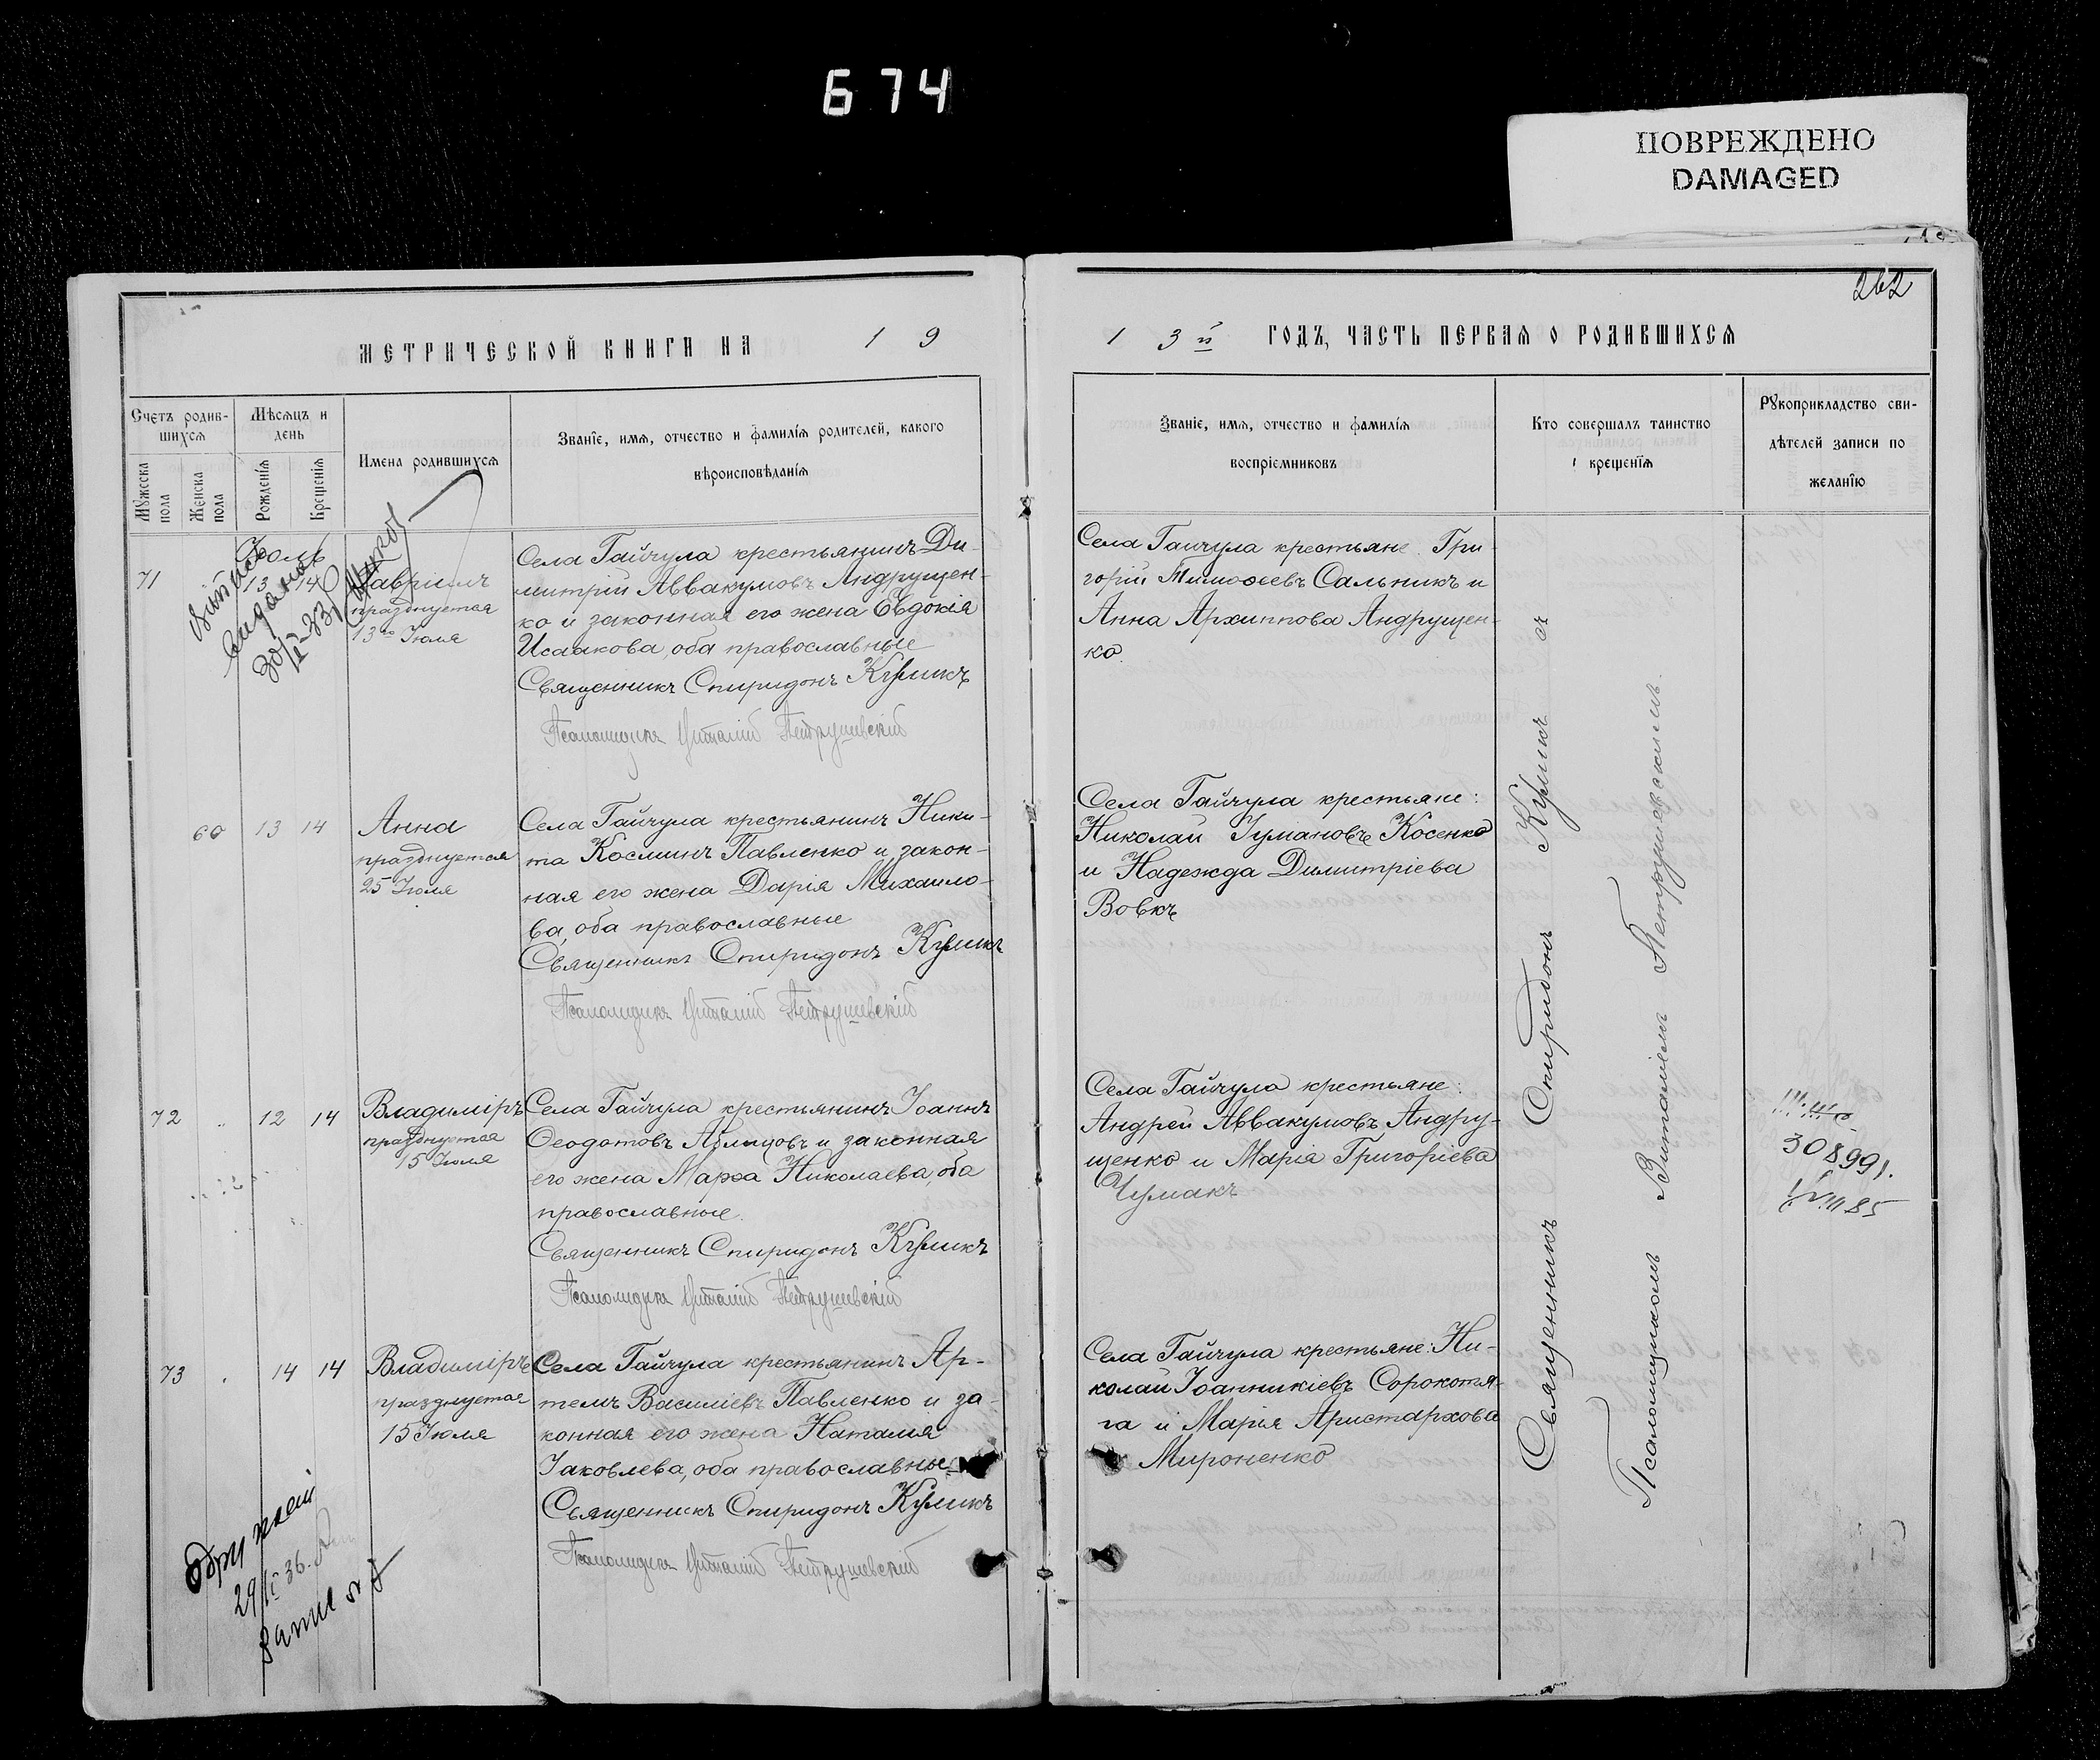 674
ПОВРЕЖДЕНО
DAMAGED
262
МЕТРИЧЕСКОЙ КНИГИ НА 1 9
1 3й ГОДЪ, ЧАСТЬ ПЕРВАЯ О РОДИВШИХСЯ
Счетъ родив-
шихся
Мужеска пола
Женска пола
Мѣсяцъ и
день
Рожденія
Крещенія
Имена родившихся
Званіе, имя, отчество и фамилія родителей, какого
вѣроисповѣданія
Званіе, имя, отчество и фамилія
воспріемниковъ
Кто совершалъ таинство
крещенія
Рукоприкладство сви-
дѣтелей записи по
желанію
Іюль
71
13 14
Гавріилъ
празднуется
13го Іюля
Села Гайчула крестьянинъ Ди-
митрій Аввакумовъ Андрущен-
ко и законная его жена Евдокія
Исаакова, оба православные
Священникъ Спиридонъ Куликъ
Псаломщикъ Виталій Петрушевскій
Села Гайчула крестьяне: Гри
горій Тимофеевъ Сальникъ и
Анна Архиппова Андрущен-
ко.
60 13 14
Анна
празднуется
25 Іюля
Села Гайчула крестьянинъ Ники-
та Косминъ Павленко и закон-
ная его жена Дарія Михаило-
ва, оба православные
Священникъ Спиридонъ Куликъ
Псаломщикъ Виталій Петрушевскій
Села Гайчула крестьяне:
Николай Косенко
и Надежда Димитріева
Вовкъ
72 12 14
Владиміръ
празднуется
15 Іюля
Села Гайчула крестьянинъ Іоаннъ
Ѳеодотовъ и законная
его жена Марѳа Николаева, оба
православные.
Священникъ Спиридонъ Куликъ
Псаломщикъ Виталій Петрушевскій
Села Гайчула крестьяне:
Андрей Аввакумовъ Андру-
щенко и Марія Григоріева
Чумакъ
308991.
85
73 14 14
Владиміръ
празднуется
15 Іюля
Села Гайчула крестьянинъ Ар-
темъ Василіевъ Павленко и за-
конная его жена Наталія
Іаковлева, оба православные
Священникъ Спиридонъ Куликъ
Псаломщикъ Виталій Петрушевскій
Села Гайчула крестьяне: Ни-
колай Іоанникіевъ Сорокотя-
га и Марія Аристархова
Мироненко
Священникъ Спиридонъ Куликъ съ
Псаломщикомъ Виталіемъ Петрушевскимъ.